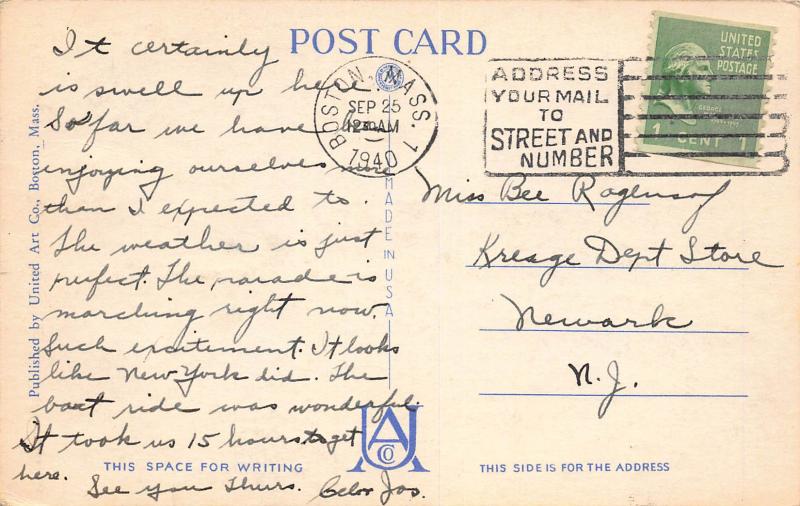 POST CARD
It certainly
is swell up here.
So far we have been
enjoying ourselves more
than I expected to.
The weather is just
perfect. The parade is
marching right now.
Such excitement. It looks
like New York did. The
boat ride was wonderful.
It took us 15 hours to get
here.
See you Thurs.
THIS SPACE FOR WRITING
Published by United Art Co., Boston, Mass.
MADE IN USA
UA CO
BOSTON, MASS. 1
SEP 25
12 30 AM
1940
ADDRESS
YOUR MAIL
TO
STREET AND
NUMBER
UNITED
STATES
POSTAGE
1 CENT 1
Miss Bee
Kresge Dept Store
Newark
N.J.
THIS SIDE IS FOR THE ADDRESS